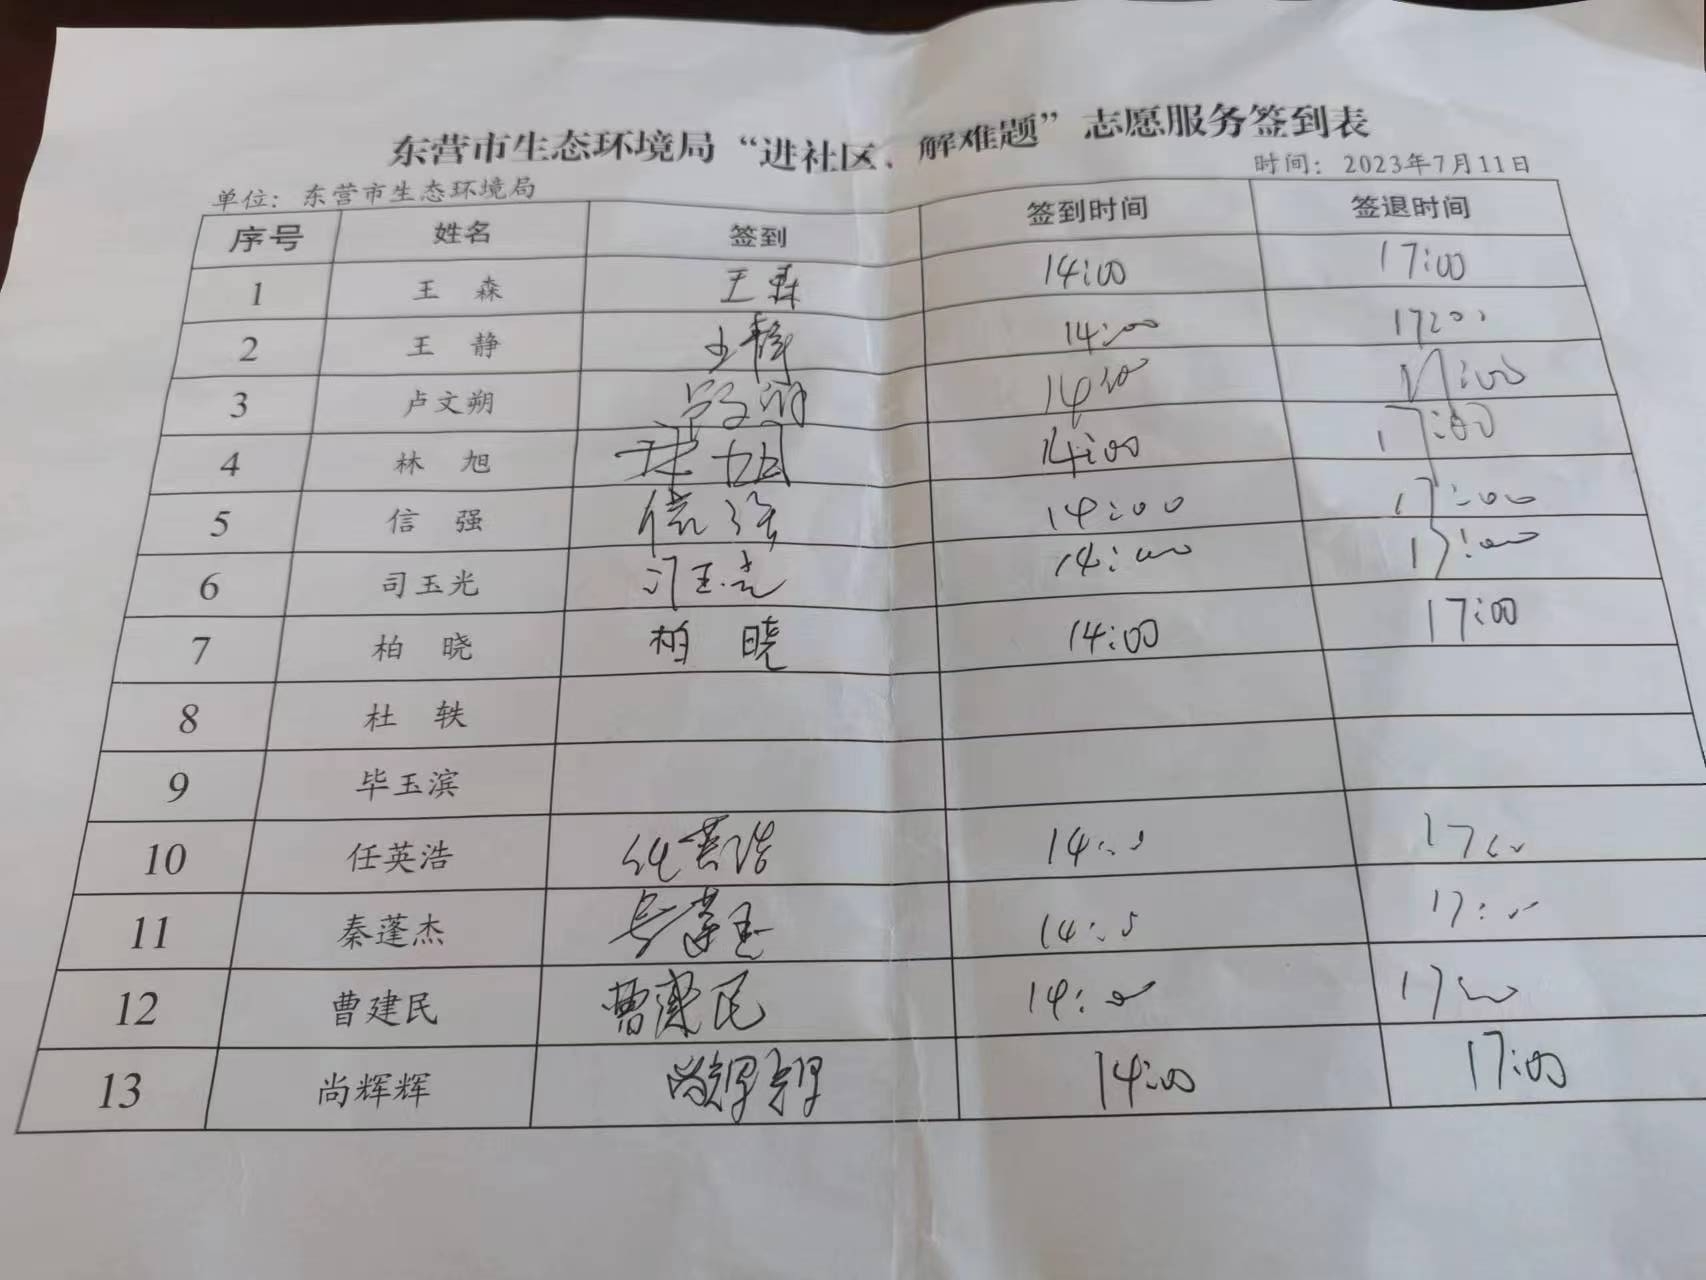 东营市生态环境局“进社区、解难题”志愿服务签到表
单位：东营市生态环境局 时间：2023年7月11日
序号 姓名 签到 签到时间 签退时间
1 王 森 王森 14:00 17:00
2 王 静 王静 14:00 17:00
3 卢文朔 14:00 17:00
4 林 旭 林旭 14:00 17:00
5 信 强 信强 14:00 17:00
6 司玉光 司玉光 14:00 17:00
7 柏 晓 柏 晓 14:00 17:00
8 杜 轶
9 毕玉滨
10 任英浩 任英浩 14:00 17:00
11 秦蓬杰 14:00 17:00
12 曹建民 曹建民 14:00 17:00
13 尚辉辉 尚辉辉 14:00 17:00